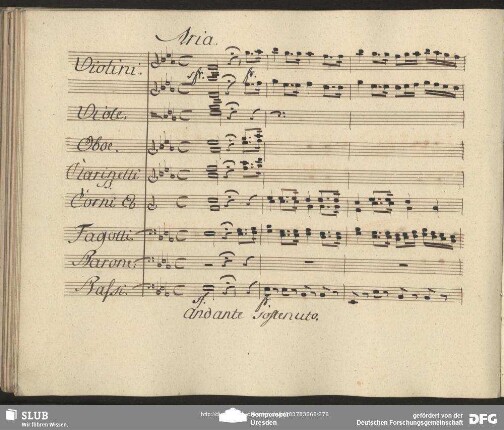 Aria.
Violini.
Viole.
Oboe.
Clarinetti
Corni
Fagotti.
Barone.
Bassi.
Andante Sostenuto.
SLUB
Wir führen Wissen.
Dresden
gefördert von der
Deutschen Forschungsgemeinschaft
DFG